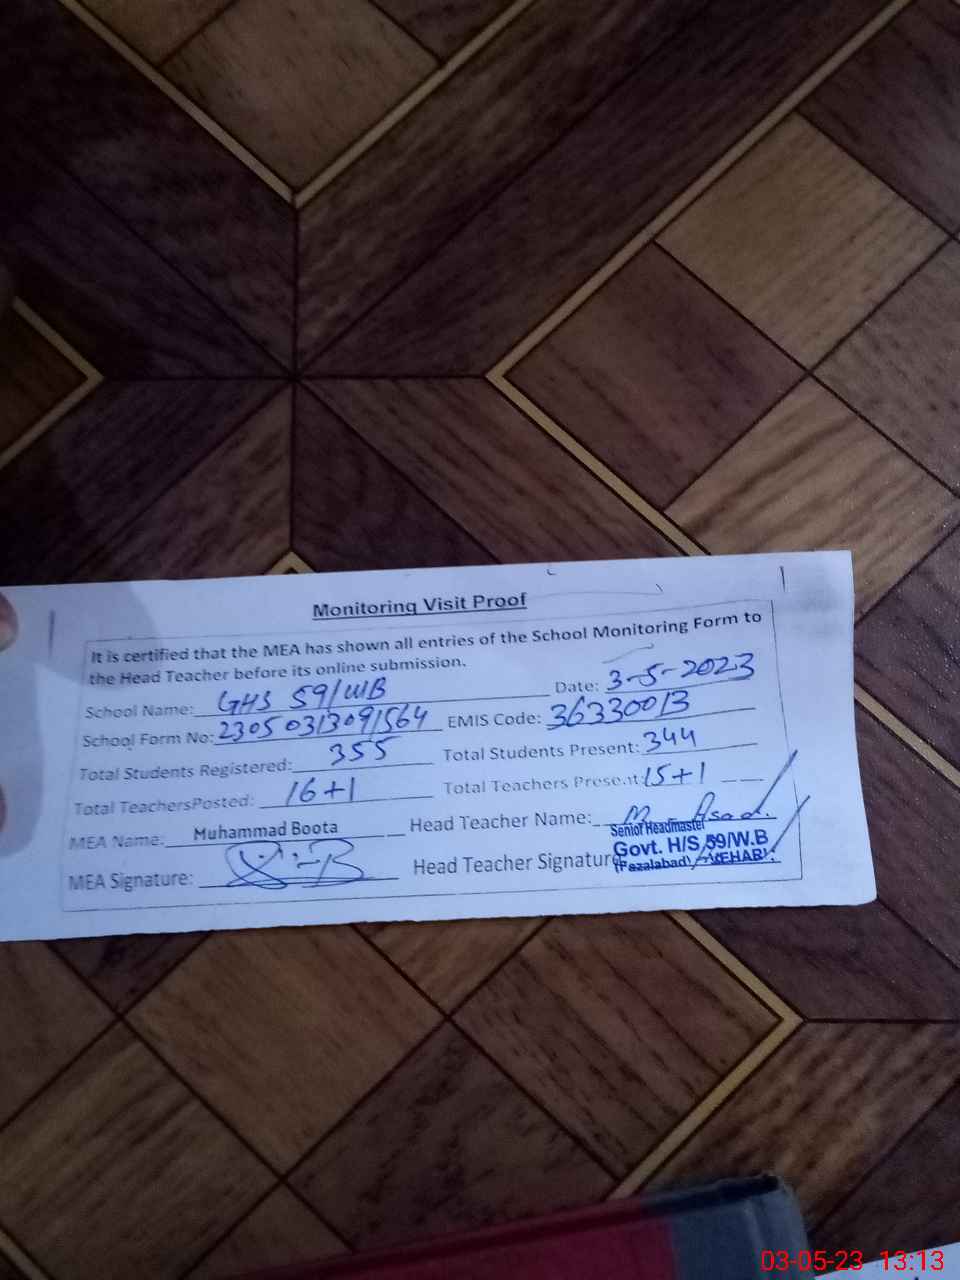 Monitoring Visit Proof
It is certified that the MEA has shown all entries of the School Monitoring Form to
the Head Teacher before its online submission.
School Name: GHS 59/WB Date: 3-5-2023
School Form No: 23050313091564 EMIS Code: 36330013
Total Students Registered: 355 Total Students Present: 344
Total TeachersPosted: 16+1 Total Teachers Present: 15+1
MEA Name: Muhammad Boota Head Teacher Name: M Asad.
Senior Headmaster
MEA Signature: Head Teacher Signature
Govt. H/S 59/W.B
(Fazalabad) VEHARI.
03-05-23 13:13